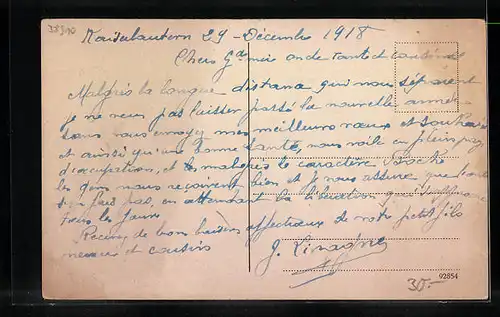 Kaiserlautern 29 Décembre 1918
Chers Gd mère oncle tante et cousine
Malgrès la longue distance qui nous séparent
je ne veux pas laisser passé la nouvelle année
sans vous envoyez mes meilleurs vœux et souhaits
et ainsi qu'une bonne santé, nous voila en plein pays
d'occupation, et malgrès le caractère Boche
les gens nous reçoivent bien et je vous assure que
en attendant la libération qui s'approche
tous les jours
Recevez de bons baisers affectueux de votre petit fils
neveux et cousins
J.
92854
30.-